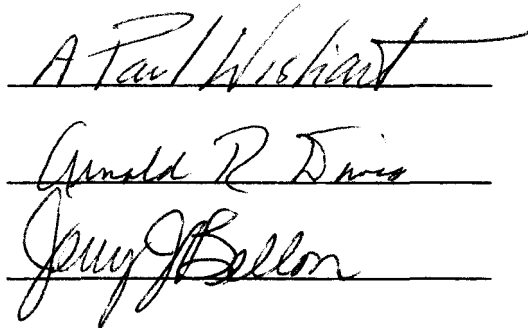 A Paul Wishart
Arnold R Davis
Jerry J Bellon